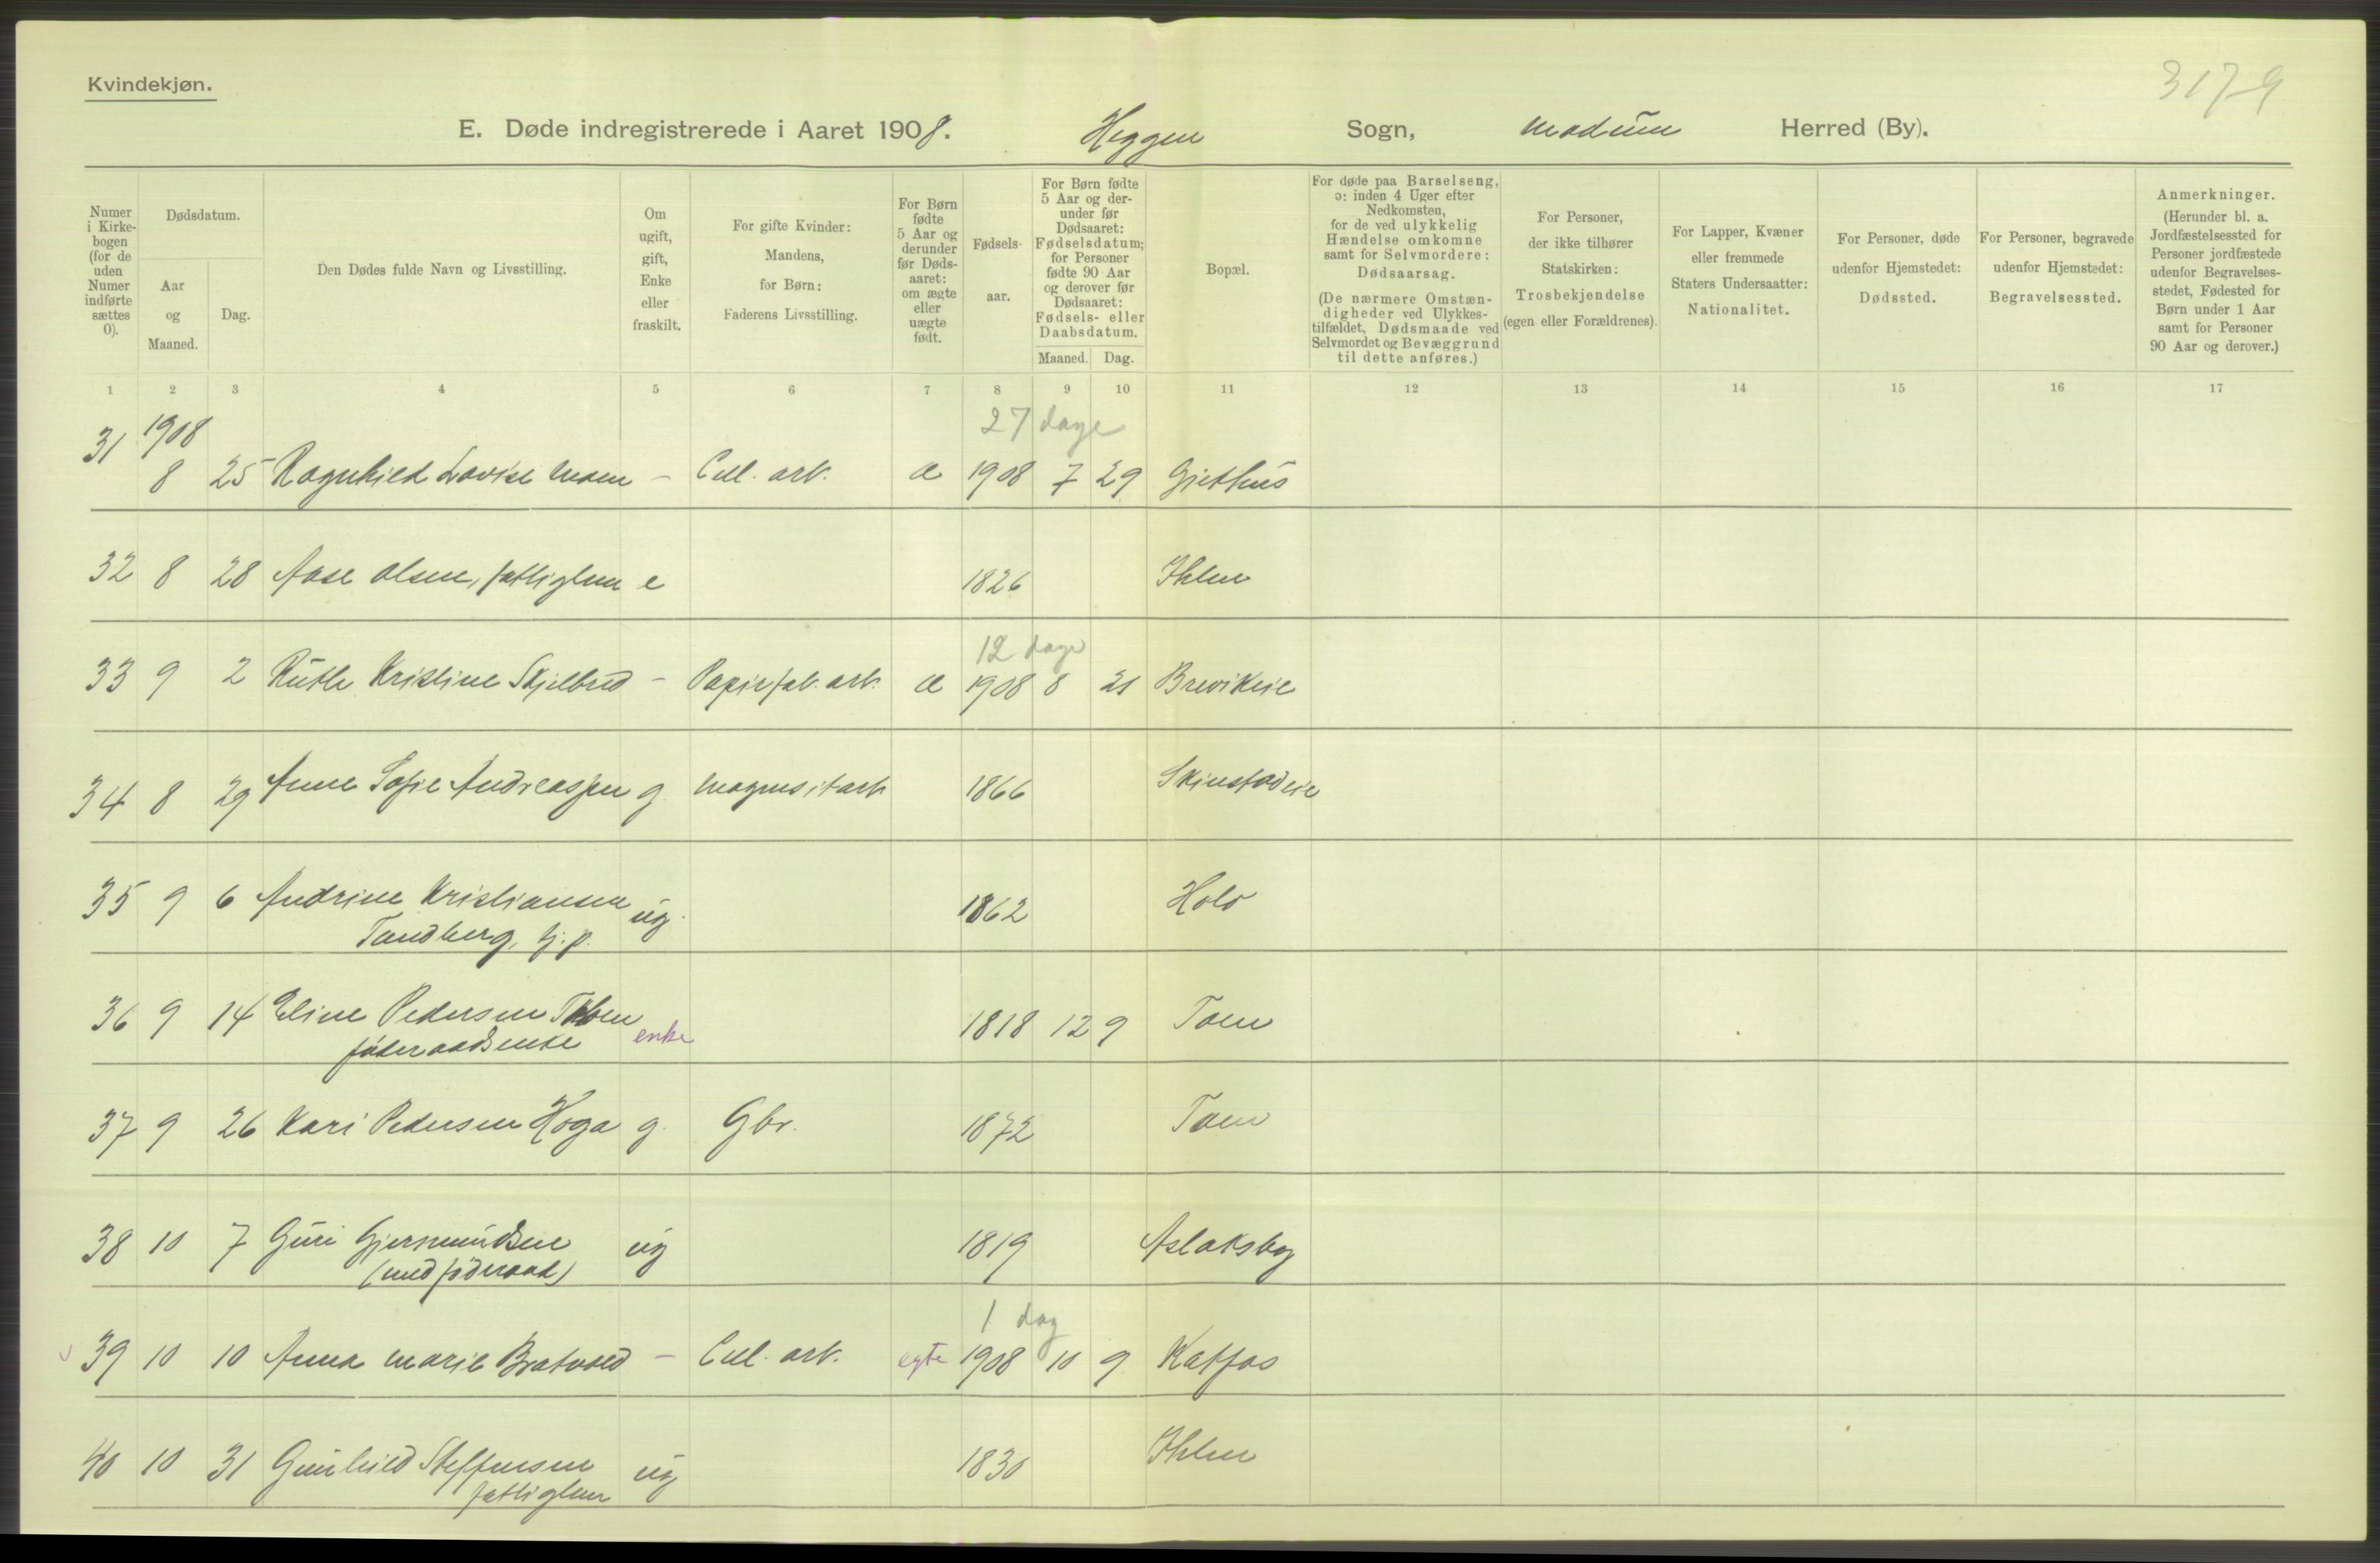 Kvindekjøn.
3179
E. Døde indregistrerede i Aaret 1908. Heggen Sogn, Modum Herred (By).
Numer i Kirkebogen (for de uden Numer indførte sættes 0).
Dødsdatum.
Aar og Maaned.
Dag.
Den Dødes fulde Navn og Livsstilling.
Om ugift, gift, Enke eller fraskilt.
For gifte Kvinder: Mandens, for Børn: Faderens Livsstilling.
For Børn fødte 5 Aar og derunder før Dødsaaret: om ægte eller uægte født.
Fødselsaar.
For Børn fødte 5 Aar og derunder før Dødsaaret: Fødselsdatum; for Personer fødte 90 Aar og derover før Dødsaaret: Fødsels- eller Daabsdatum.
Maaned. Dag.
Bopæl.
For døde paa Barselseng, ɔ: inden 4 Uger efter Nedkomsten, for de ved ulykkelig Hændelse omkomne samt for Selvmordere: Dødsaarsag.
(De nærmere Omstændigheder ved Ulykkestilfældet, Dødsmaade ved Selvmordet og Bevæggrund til dette anføres.)
For Personer, der ikke tilhører Statskirken: Trosbekjendelse (egen eller Forældrenes).
For Lapper, Kvæner eller fremmede Staters Undersaatter: Nationalitet.
For Personer, døde udenfor Hjemstedet: Dødssted.
For Personer, begravede udenfor Hjemstedet: Begravelsessted.
Anmerkninger.
(Herunder bl. a. Jordfæstelsessted for Personer jordfæstede udenfor Begravelsesstedet, Fødested for Børn under 1 Aar samt for Personer 90 Aar og derover.)
1 2 3 4 5 6 7 8 9 10 11 12 13 14 15 16 17
1908 27 dage
31 8 25 Ragnhild Lovise Moen – Cell. arb. æ 1908 7 29 Gjethus
32 8 28 Aase Olsen, fattiglem e 1826 Ihlen
12 dage
33 9 2 Ruth Kristine Skjelbred – Papirfab. arb. æ 1908 8 21 Brevikeie
34 8 29 Anne Sofie Andreassen g. magnesitarb 1866 Skinstadeie
35 9 6 Andrine Kristiansen ug. 1862 Holo
Tandberg, tj. p.
36 9 14 Eline Pedersen Toen enke 1818 12 9 Toen
føderaadsenke
37 9 26 Kari Pedersen Hoga g. Gbr. 1872 Toen
38 10 7 Guri Gjermundsen ug 1819 Aslaksby
(med føderaad)
1 dag
39 10 10 Anna Marie Bratvold – Cell. arb. egte 1908 10 9 Katfos
40 10 31 Gunhild Steffensen ug 1830 Ihlen
fattiglem